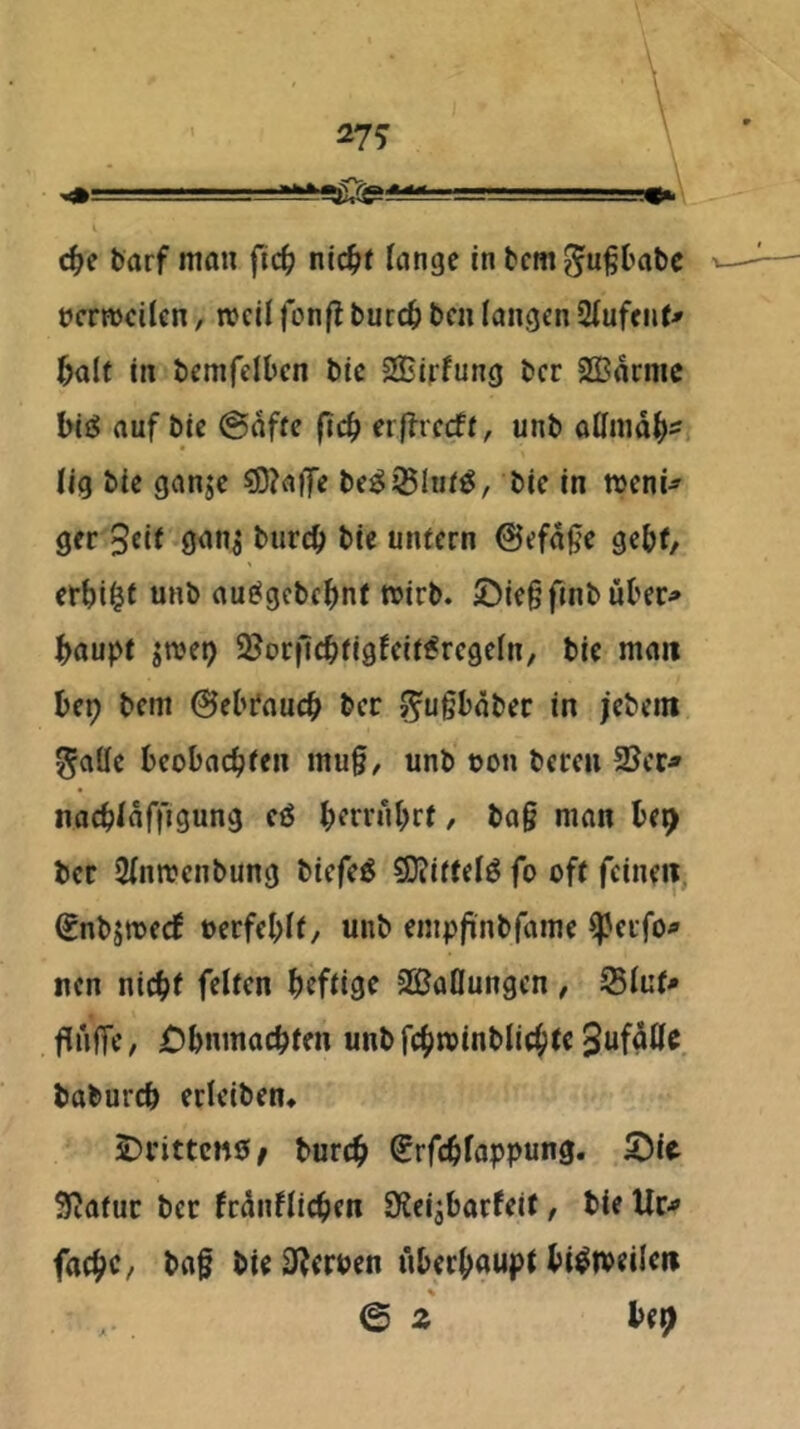 275
che darf man sich nicht lange in dem Fußbade
verweilen, weil sonst durch den langen Aufent-
halt in demselben die Wirkung der Wärme
bis auf die Säfte sich erstreckt, und allmäh-
lig die ganze Masse des Bluts, die in weni-
ger Zeit ganz durch die untern Gefäße geht,
erhitzt und ausgedehnt wird. Dieß sind über-
haupt zwey Vorsichtigkeitsregeln, die man
bey dem Gebrauch der Fußbäder in jedem
Falle beobachten muß, und von deren Ver-
nachläffigung es herrührt, daß man bey
der Anwendung dieses Mittels so oft seinen
Endzweck verfehlt, und empfindsame Perso-
nen nicht selten heftige Wallungen, Blut-
flüsse, Ohnmachten und schwindlichte Zufälle
dadurch erleiden.
Drittens, durch Erschlappung. Die
Natur der kränklichen Reizbarkeit, die Ur-
sache, daß die Nerven überhaupt bisweilen
S 2 bey